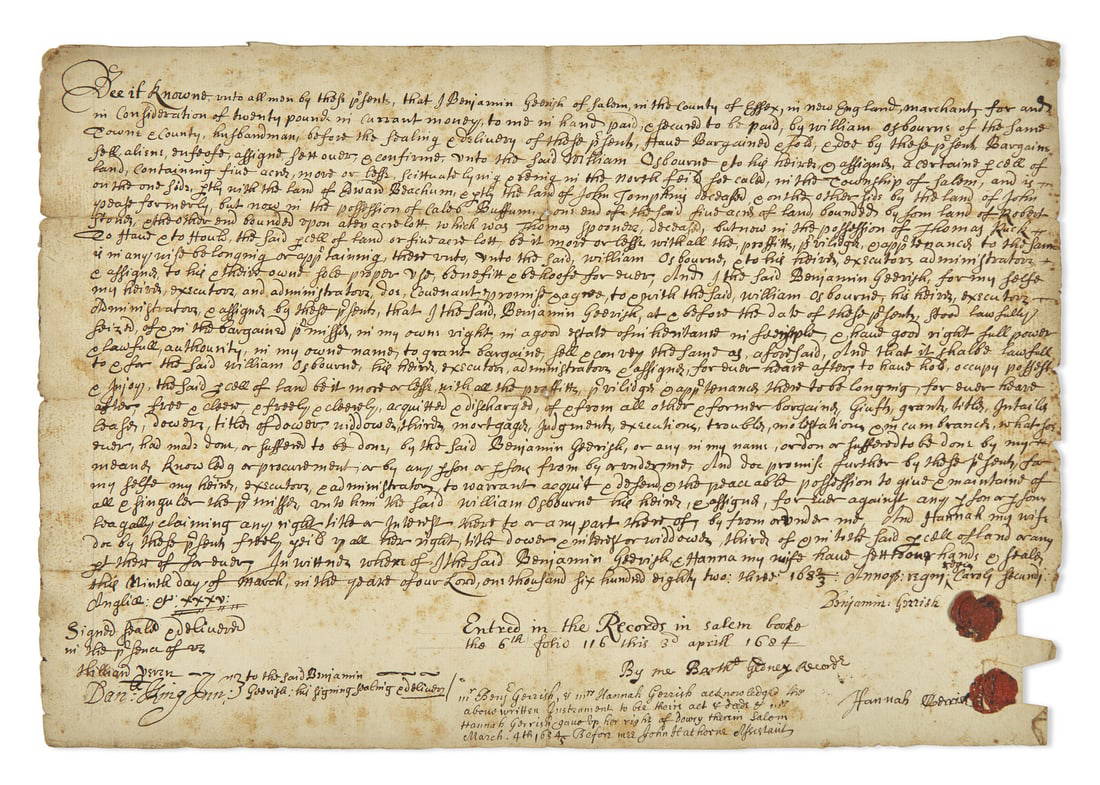 Bee it Knowne vnto all men by these p'sents, that I Benjamin Gerrish of Salem, in the County of Essex, in new England, marchant, for and
in Consideration of twenty pound in currant money, to me in hand paid, & secured to be paid, by William Osbourne of the same
Towne & County, husbandman, before the sealing & delivery of these p'sents, Haue Bargained & sold, & doe by these p'sent Bargaine
sell aliene, enfeofe, assigne sett over & confirme vnto the said William Osbourne & to his heires & assignes, a certaine p cell of
land, containing five acres, more or lesse, scittuate lying & being in the North feild soe caled, in the Township of Salem, and is
on the one side, ptly with the land of Edward Beachum, & ptly the land of John Tompkins deceased & on the other side by the land of John
pease formerly, but now in the possession of Caleb Buffum, & one end of the said five acres of land, bounded by som land of Robert
Stone, & the other end bounded vpon a ten acre lott which was Thomas Spooners, deceased, but now in the possession of Thomas Ruck
To Haue & to Hould, the said p cell of land or five acre lott be it more or lesse with all the proffitts, p'viledges & app'tenances to the same
is in any wise belonging or app'taining, there vnto, vnto the said, William Osbourne, & to his heires, executors administrators
& assignes, to his & theire owne sole proper vse, benefitt & behoofe for ever, And I the said Benjamin Gerrish, for my selfe
my heires, executors, and administrators, doe, Covenant & promise & agree, to & with the said, William Osbourne his heires, executors
Administrators & assignes by these p'sents, that I the said, Benjamin Gerrish, at & before the date of these p'sents, stood lawfully
seized, of & in the bargained p'misses, in my owne right in a good estate of in heritance in feesimple & have good right full power
& lawfull authority, in my owne name, to grant bargaine, sell & convey the same as, aforesaid, And that it shalbe lawfull
to & for the said William Osbourne, his heires, executors, administrators & assignes, for ever heare after to haue hold, occupy possess
& Injoy, the said p cell of land be it more or lesse, with all the proffitts, p'viledges & app'tenances there to be longing, for ever heare
after, free & cleere, & freely & cleerely, acquitted & discharged, of & from all other & former bargaines, Giufts, grants, titles, Intailes
leases, dowers, titles of dower widdowes, thirds, mortgages, Judgments, executions, troubles, molestations & in cumbrances, what soe
ever, had made don, or suffered to be done, by the said Benjamin Gerrish, or any in my name, or don or suffered to be done by my
meanes, knowledg or procurement, or by any p son or p sons from by or vnder me, And doe promise further by these p'sents, for
my selfe my heires, executors, & administrators, to warrant acquit & defend, & the peaceable possession to give & maintaine of
all & singuler the p'misses, vnto him the said William Osbourne his heires, & assignes, for ever against any p son or p sons
leagally claiming any right, title or Interest there to or any part there of, by from or vnder me, And Hannah my wife
doe by these p'sents freely yeild vp all her right, title dower & interest or widdowes, thirds of & in to the said p cell of land or any
pt there of for ever, In wittnes where of I the said Benjamin Gerrish & Hanna my wife haue sett to our hands & seales
this Ninth day, of March, in the yeare of our Lord, one thousand six hundred eighty two: three: 1682/3 Annoq: regni: regis Caroli secundi
Angliæ: &c XXXV:
Benjamin: Gerrish
Signed seald & delivered
in the p'senc of vs
Entred in the Records in Salem booke
the 6th folio 116 this 3d aprill 1684
By me Barthe Gedney Record'
Hilliard Veren
to the said Benjamin
Gerrish: his signing sealing & delivery
mr Benj: Gerrish, & mrs Hannah Gerrish acknowledged the
above written Instrument to bee theire act & deed & mrs
Hannah Gerrish gave vp her right of dowry therein Salem
March. 4th 1683/4 Before mee John Hathorne Assistant
Hannah Gerrish